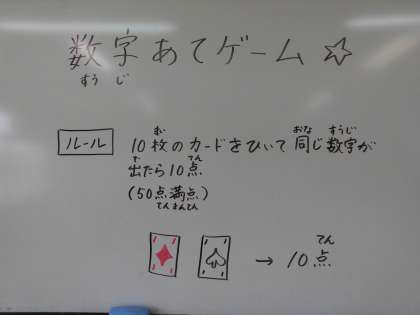 数字あてゲーム☆
すう じ
ルール
まい おな すうじ
10枚のカードをひいて同じ数字が
で てん
出たら10点
(50点満点)
てんまんてん
てん
→ 10点